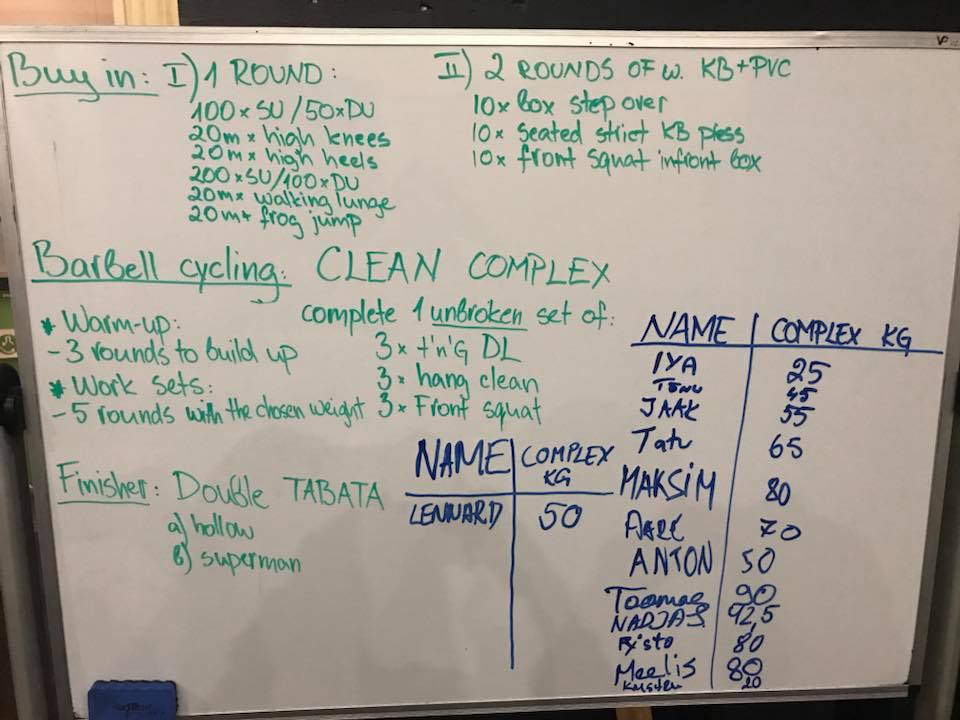 Buy in: I) 1 ROUND:
100x SU / 50x DU
20m x high knees
20m x high heels
200x SU/100x DU
20m x walking lunge
20m x frog jump
II) 2 ROUNDS OF w. KB+PVC
10x box step over
10x seated strict KB press
10x front squat infront box
Barbell cycling: CLEAN COMPLEX
* Warm-up:
- 3 rounds to build up
* Work sets:
- 5 rounds with the chosen weight
complete 1 unbroken set of:
3x t'n'G DL
3x hang clean
3x Front squat
Finisher: Double TABATA
a) hollow
b) superman
NAME COMPLEX KG
LENNARD 50
NAME COMPLEX KG
IYA 25
TÕNU 45
JAAK 55
Tatu 65
MAKSIM 80
AARE 70
ANTON 50
Toomas 90
92,5
Risto 80
Meelis 80
20